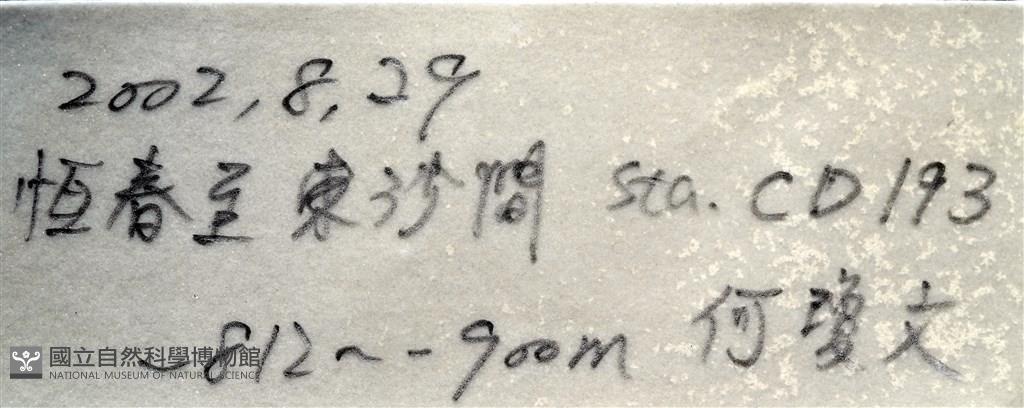 2002, 8, 29
恆春至東沙間 Sta. CD193
-812~-900m 何瓊文
國立自然科學博物館
NATIONAL MUSEUM OF NATURAL SCIENCE